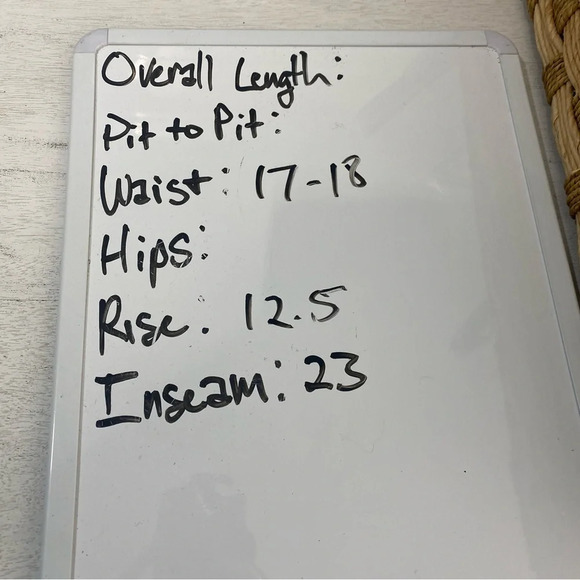 Overall Length:
Pit to Pit:
Waist: 17-18
Hips:
Rise: 12.5
Inseam: 23